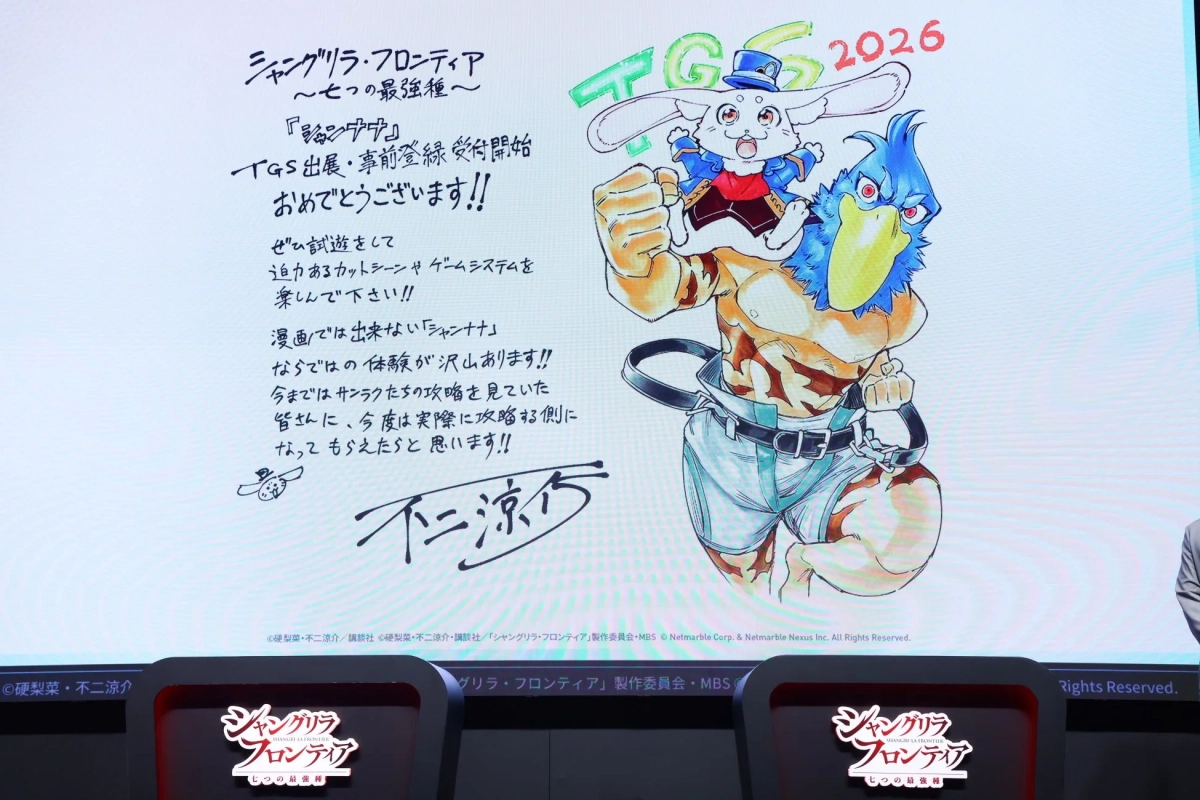 シャングリラ・フロンティア
～七つの最強種～
『シャンナナ』
TGS出展・事前登録 受付開始
おめでとうございます!!
ぜひ試遊をして
迫力あるカットシーンやゲームシステムを
楽しんで下さい!!
漫画では出来ない「シャンナナ」
ならではの体験が沢山あります!!
今まではサンラクたちの攻略を見ていた
皆さんに、今度は実際に攻略する側に
なってもらえたらと思います!!
不二涼介
TGS 2026
©硬梨菜・不二涼介／講談社 ©硬梨菜・不二涼介・講談社／「シャングリラ・フロンティア」製作委員会・MBS © Netmarble Corp. & Netmarble Nexus Inc. All Rights Reserved.
©硬梨菜・不二涼介 グリラ・フロンティア」製作委員会・MBS © Rights Reserved.
シャングリラ
SHANGRI-LA FRONTIER
フロンティア
七つの最強種
シャングリラ
SHANGRI-LA FRONTIER
フロンティア
七つの最強種